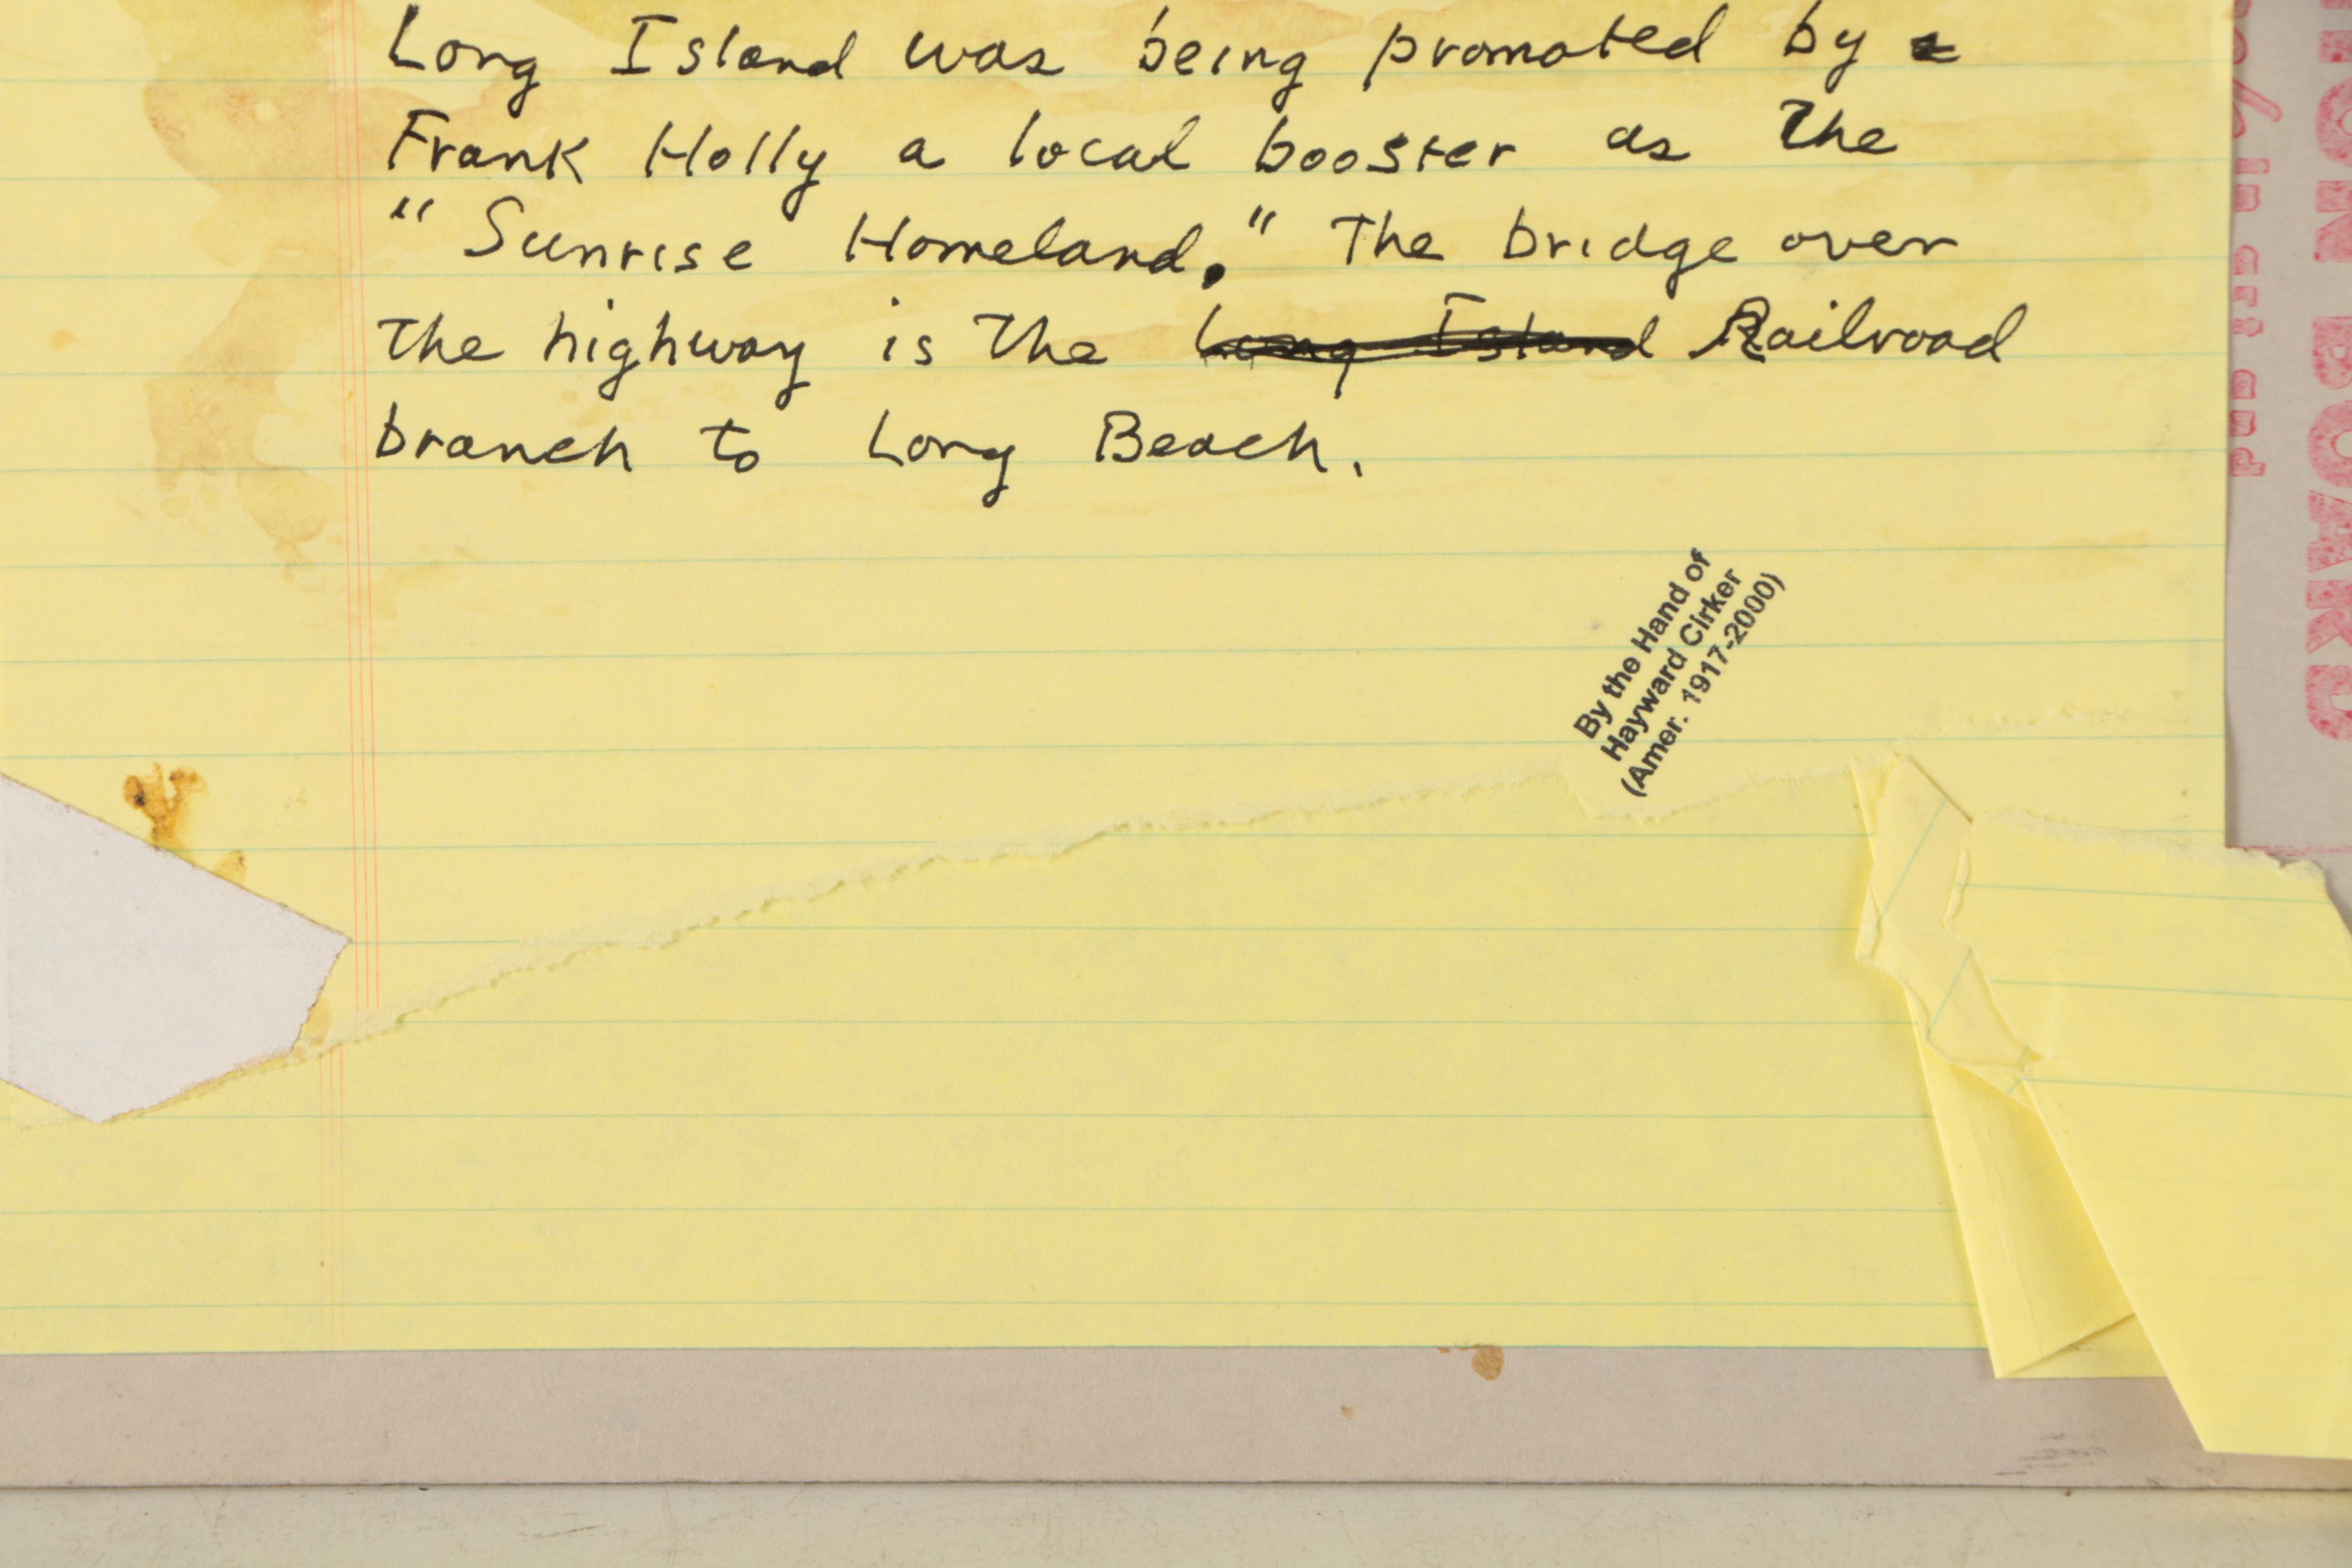 Long Island was being promoted by a
Frank Holly a local booster as the
"Sunrise Homeland." The bridge over
the highway is the Long Island Railroad
branch to Long Beach.
By the Hand of
Hayward Cirker
(Amer. 1917-2000)
BOARD